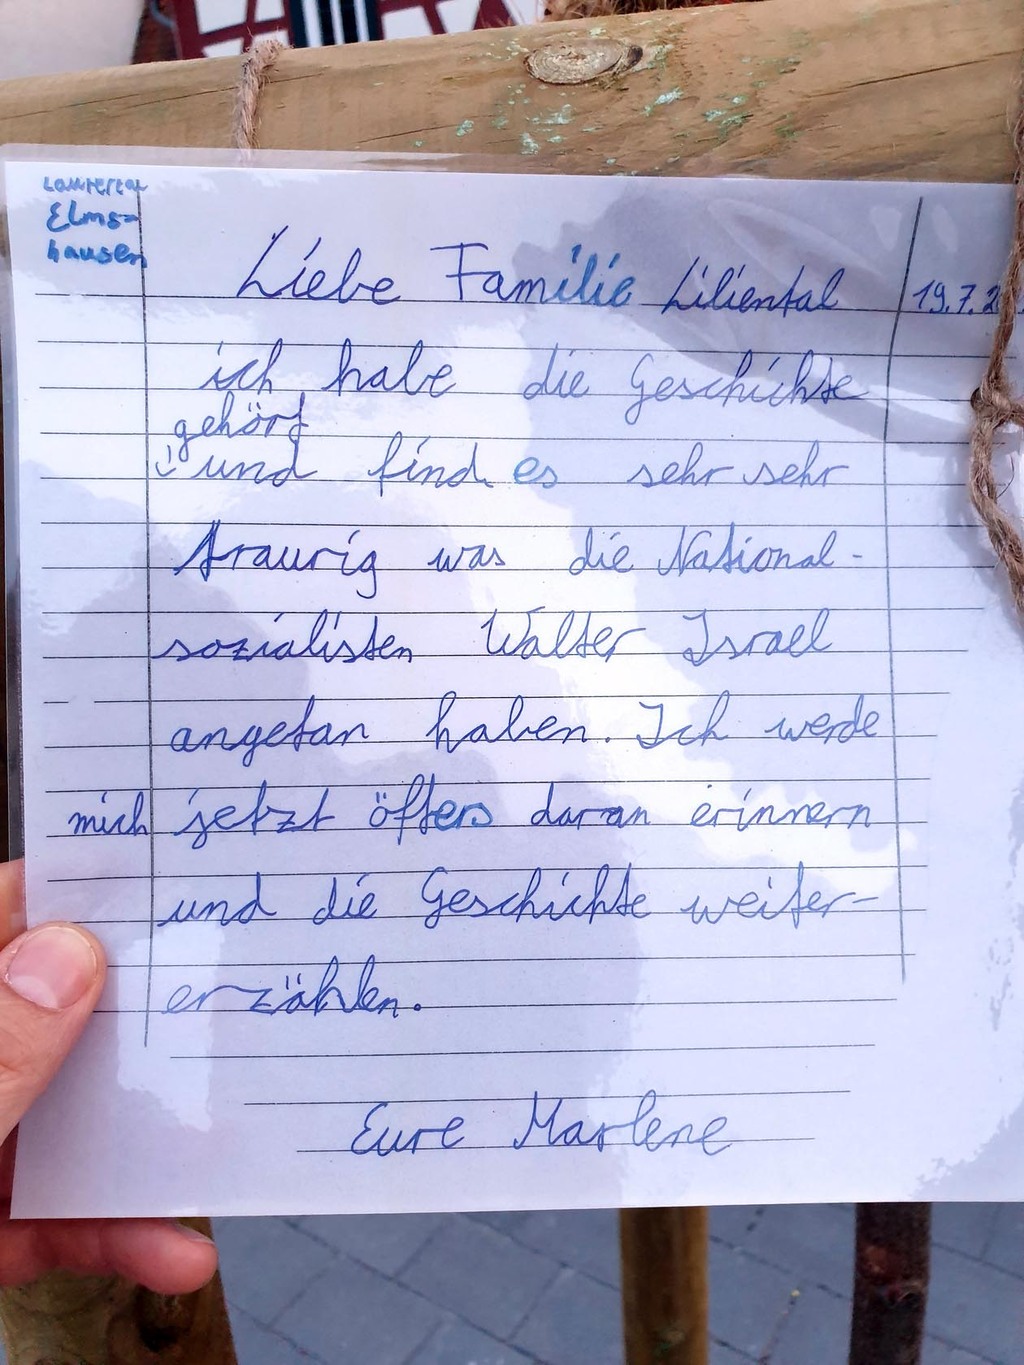 Lautertal
Elms-
hausen
Liebe Familie Liliental
19.7.2
ich habe die Geschichte
gehört
und find es sehr sehr
traurig was die National-
sozialisten Walter Israel
angetan haben. Ich werde
mich jetzt öfters daran erinnern
und die Geschichte weiter-
erzählen.
Eure Marlene